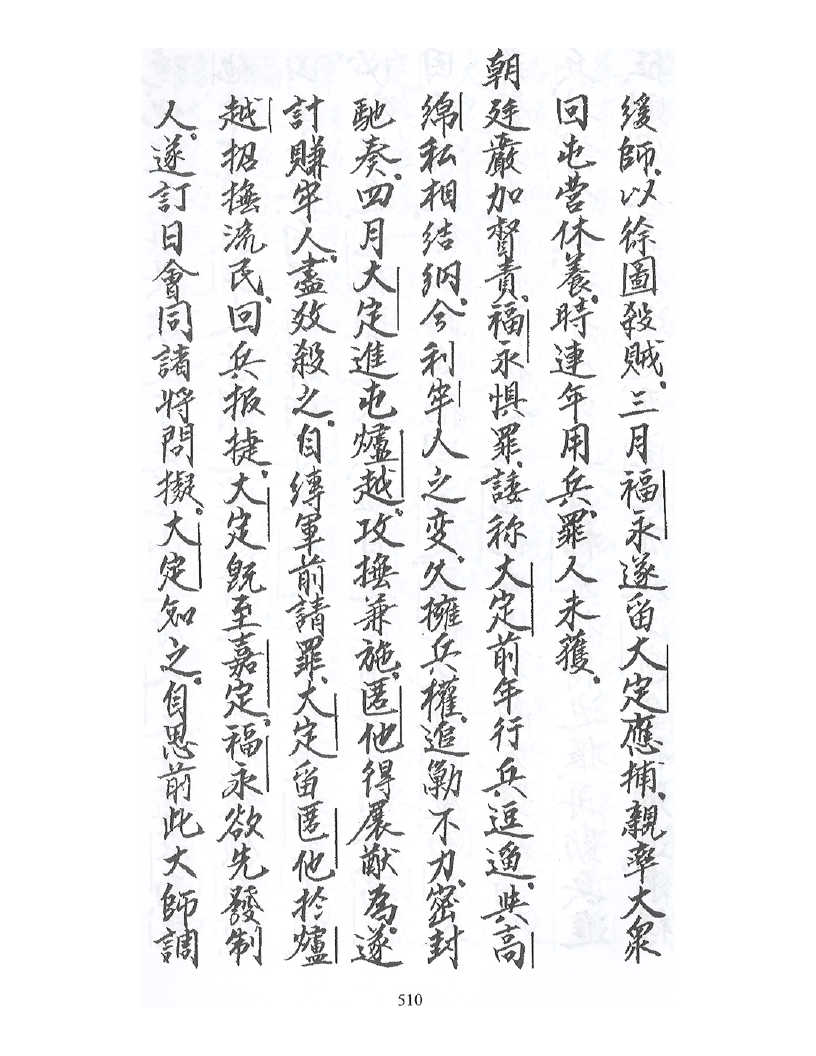 緩師以徐圖殺賊三月福永遂留大定應捕親率大衆
回屯營休養時連年用兵罪人未獲
朝廷嚴加督責福永惧罪諉称大定前年行兵逗遛与高
綿私相結納今利牢人之变久擁兵權追勦不力密封
馳奏四月大定進屯爐越攻撫兼施匿他得展猷為遂
計賺牢人盡殺之自縛軍前請罪大定留匿他於爐
越招撫流民回兵报捷大定既至嘉定福永欲先發制
人遂訂日會同諸将問擬大定知之自思前此大師調
510